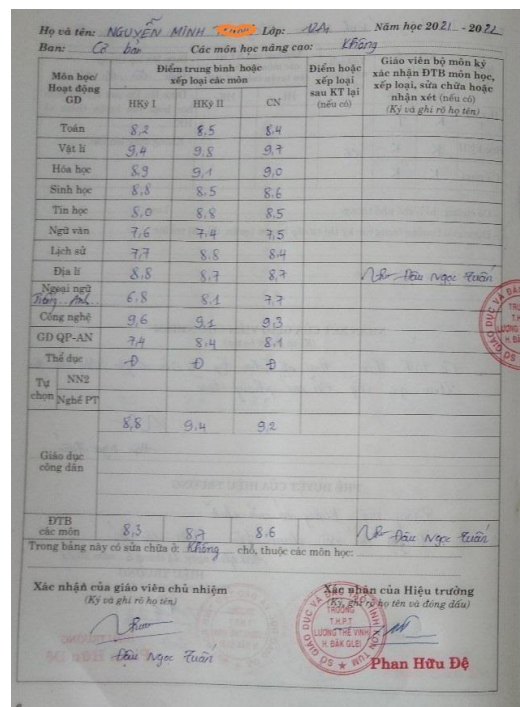 Họ và tên: NGUYỄN MINH Lớp: 12A1 Năm học 2021 - 2022
Ban: Cơ bản Các môn học nâng cao: Không
Môn học/ Hoạt động GD
Điểm trung bình hoặc xếp loại các môn
HKỳ I HKỳ II CN
Điểm hoặc xếp loại sau KT lại (nếu có)
Giáo viên bộ môn ký xác nhận ĐTB môn học, xếp loại, sửa chữa hoặc nhận xét (nếu có)
(Ký và ghi rõ họ tên)
Toán 8,2 8,5 8,4
Vật lí 9,4 9,8 9,7
Hóa học 8,9 9,1 9,0
Sinh học 8,8 8,5 8,6
Tin học 8,0 8,8 8,5
Ngữ văn 7,6 7,4 7,5
Lịch sử 7,7 8,8 8,4
Địa lí 8,8 8,7 8,7 Đậu Ngọc Tuấn
Ngoại ngữ
Tiếng Anh 6,8 8,1 7,7
Công nghệ 9,6 9,1 9,3
GD QP-AN 7,4 8,4 8,1
Thể dục Đ Đ Đ
Tự chọn NN2
Nghề PT
Giáo dục công dân 8,8 9,4 9,2
ĐTB các môn 8,3 8,7 8,6 Đậu Ngọc Tuấn
Trong bảng này có sửa chữa ở: Không chỗ, thuộc các môn học:
Xác nhận của giáo viên chủ nhiệm
(Ký và ghi rõ họ tên)
Đậu Ngọc Tuấn
Xác nhận của Hiệu trưởng
(Ký, ghi rõ họ tên và đóng dấu)
SỞ GIÁO DỤC VÀ ĐÀO TẠO TỈNH KON TUM
TRƯỜNG
T.H.P.T
LƯƠNG THẾ VINH
H. ĐĂK GLEI
Phan Hữu Đệ